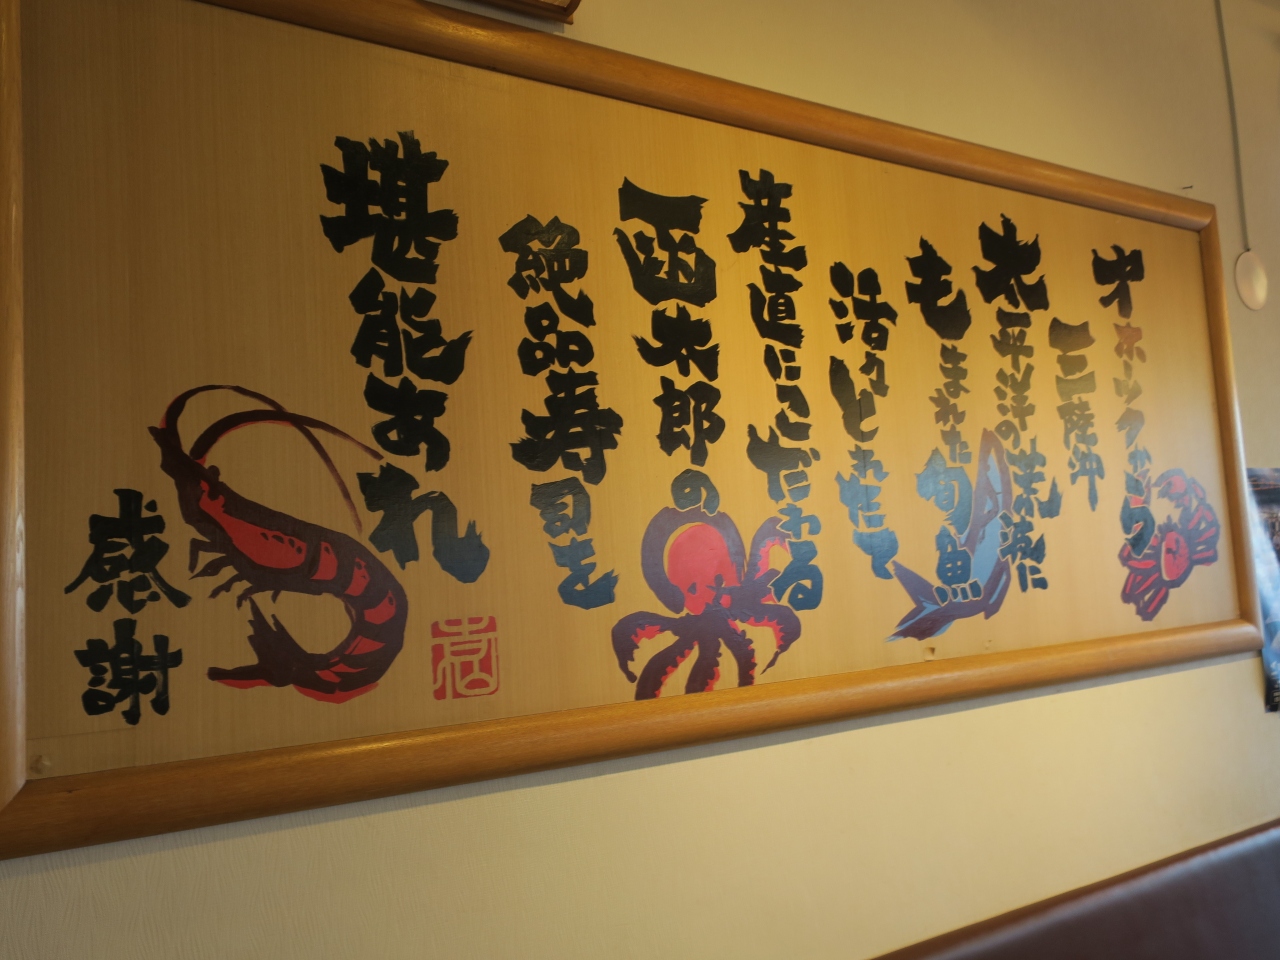 オホーツクから
三陸沖
太平洋の荒波に
もまれた旬魚
活〆とれたて
産直にこだわる
函太郎の
絶品寿司を
堪能あれ
感謝